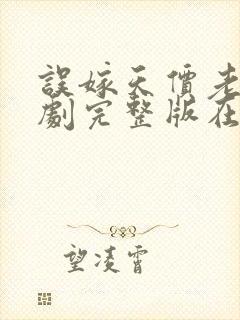 誤嫁天價老
劇完整版在
望凌霄